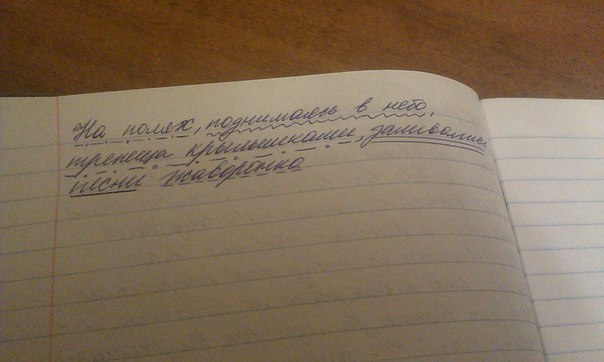 На полях, поднимаясь в небо,
трепеща крылышками, заливались
песни жаворонка